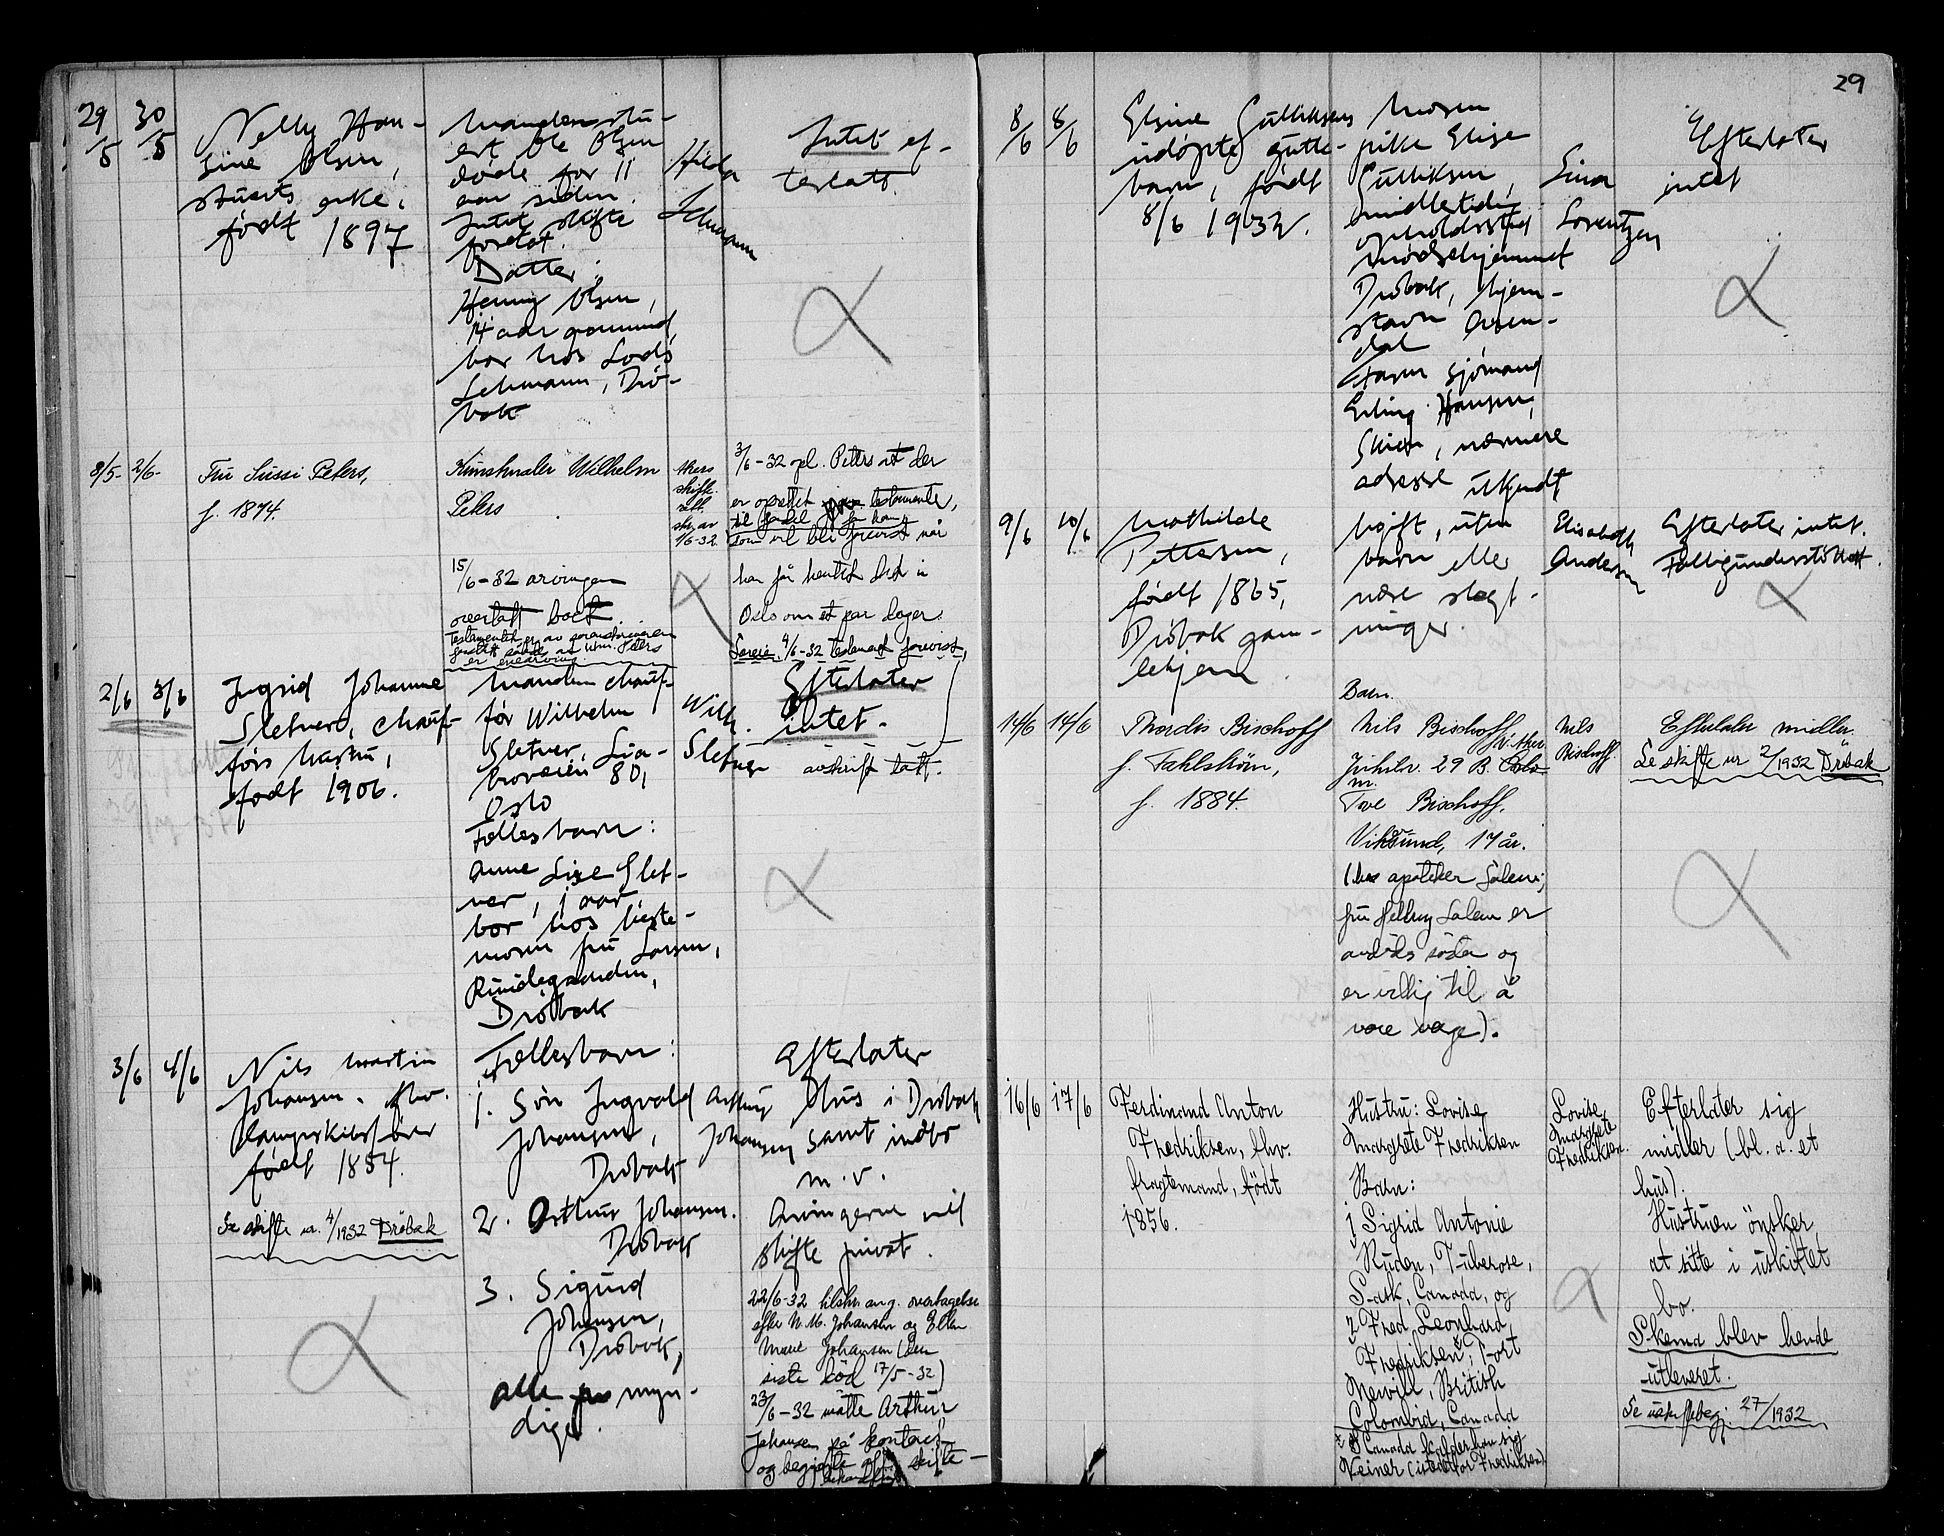 29
29/5 30/5
Nelly Han-
sine Olsen,
stuerts enke,
født 1897
Manden stu-
ert Ole Olsen
døde for 11
aar siden.
Intet skifte
foretat.
Datter:
Henny Olsen,
14 aar gammel
bor hos Lods
Lehmann, Drö-
bak
Hilda
Lehmann
Intet ef-
terlatt.
8/5- 2/6-
Fru Sussi Peters,
f. 1874.
Kunstmaler Wilhelm
Peters
15/6-32 arvingen
overtatt boet.
er enearving.
skifte
1/6-32
3/6-32 opl. Peters at der
er oprettet testamente,
som vil bli forevist når
han får hentet det i
Oslo om et par dager.
Senere. 4/6-32 testament forevist,
2/6 3/6
Ingrid Johanne
Sletner, chauf-
førs hustru,
født 1906.
Manden chauf-
før Wilhelm
Sletner
80,
Oslo
Fellesbarn:
Anne Lise Slet-
ner, 1 aar,
bor hos beste-
moren fru Larsen,
Drøbak
Wilh.
Sletner
Efterlater
intet.
avskrift tatt.
3/6 4/6
Nils Martin
Johansen, fhv.
født 1854.
Se skifte nr. 4/1932 Drøbak
Fellesbarn:
1. Søn Ingvald
Johansen,
Drøbak
2. Arthur Johansen.
Drøbak
3. Sigurd
Johansen,
Drøbak,
alle myn-
dige.
Arthur
Johansen
Efterlater
Hus i Drøbak
samt indbo
m.v.
Arvingerne vil
skifte privat.
22/6-32 tilskr. ang. overtagelse
efter N. M. Johansen og Ellen
Marie Johansen (den
siste død 17/5-32)
23/6-32 møtte Arthur
Johansen på kontoret
og begjærte off. skifte-
behandling
8/6 8/6
Elsine Gulliksens
udøpte gutte-
barn, født
8/6 1932.
Moren
pike Elise
Gulliksen,
midlertidig
opholdssted
mødrehjemmet
Drøbak, hjem-
stavn Aren-
dal
Faren sjømand
Erling Hansen,
Skien, nærmere
adresse ukjendt
Lina
Lorentzen
Efterlater
intet
9/6 10/6
Mathilde
Pettersen,
født 1865,
Drøbak gam-
lehjem
Ugift, uten
barn eller
nære slegt-
ninger.
Elisabeth
Andersen
Efterlater intet.
Fattigunderstøttet.
14/6 14/6
Thordis Bischoff
f. Fahlstrøm,
f. 1884.
Barn.
Nils Bischoff
29 B. Oslo
Tove Bischoff,
Vikersund, 17 år.
(hos apoteker Salem;
fru Salem er
avdødes søster og
er villig til å
være verge).
Nils
Bischoff.
Efterlater midler.
Se skifte nr 2/1932 Drøbak
16/6 17/6
Ferdinand Anton
Fredriksen, fhv.
fragtemand, født
1856.
Hustru: Lovise
Margrete Fredriksen
Barn:
1 Sigrid Antonie
Ruden, Tuberose,
Sask, Canada, og
2 Fred Leonhard
Fredriksen, Fort
British
Colombia, Canada
x I Canada kalder han sig
Veiner (istedetfor Fredriksen)
Lovise
Margrete
Fredriksen.
Efterlater sig
midler (bl. a. et
hus).
Hustruen ønsker
at sitte i uskiftet
bo.
Skema blev hende
utleveret.
Se uskiftebeg. 27/1932